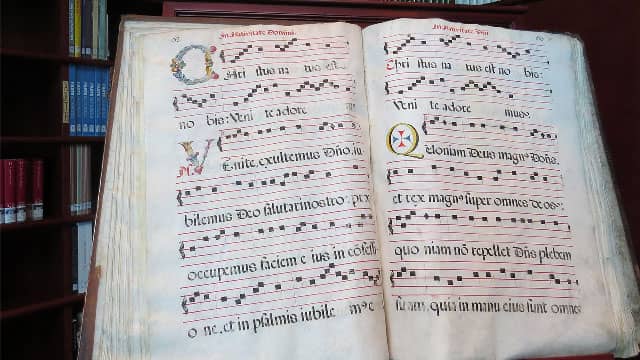 In Natiuitate Domini.
Chri stus na tus est no
no bis: Veni te adore
V Enite, exultemus Dño, iu
bilemus Deo salutari nostro: præ
occupemus faciem e ius in cõfessi
o ne, et in psalmis iubile m9 e
In Natiuitate Dñi.
Chri stus na tus est no bis:
Veni te adore mus.
Q Uoniam Deus magn9 Dñs,
et rex magn9 super omnes deos:
quo niam nõ repellet Dñs plebem
suam, quia in manu eius sunt omnes